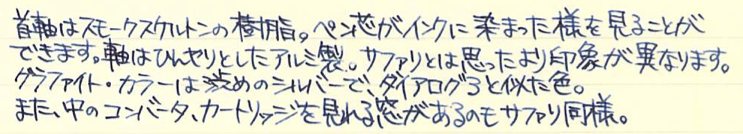 首軸はスモークスケルトンの樹脂。ペン芯がインクに染まった様を見ることが
できます。軸はひんやりとしたアルミ製。サファリとは思ったより印象が異なります。
グラファイト・カラーは渋めのシルバーで、ダイアログ3と似た色。
また、中のコンバータ、カートリッジを見れる窓があるのもサファリ同様。